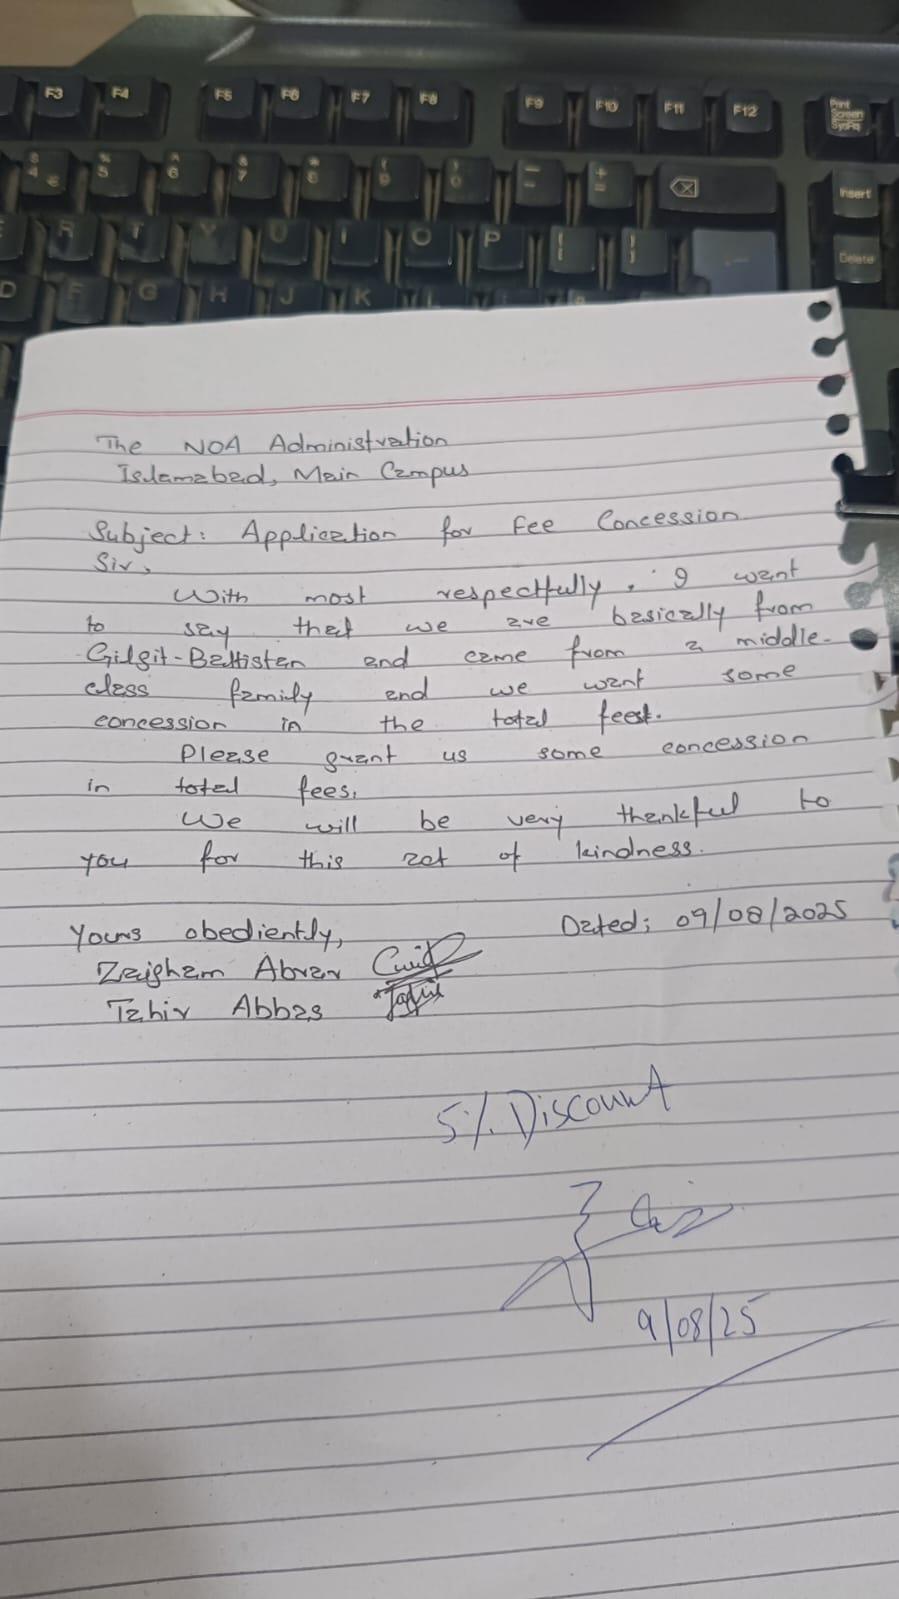 F3 F4 F5 F6 F7 F8 F9 F10 F11 F12 Print Screen SysRq
$ 4 € % 5 ^ 6 & 7 * 8 ( 9 ) 0 _ - + = Insert
R T Y U I O P { [ } ] Delete
D F G H J K L
The NOA Administration
Islamabad, Main Campus
Subject: Application for Fee Concession
Sir,
With most respectfully, I want
to say that we are basically from
Gilgit-Baltistan and came from a middle-
class family and we want some
concession in the total fees.
Please grant us some concession
in total fees.
We will be very thankful to
you for this act of kindness.
Yours obediently, Dated: 09/08/2025
Zaigham Abrar
Tahir Abbas
5% Discount
9/08/25